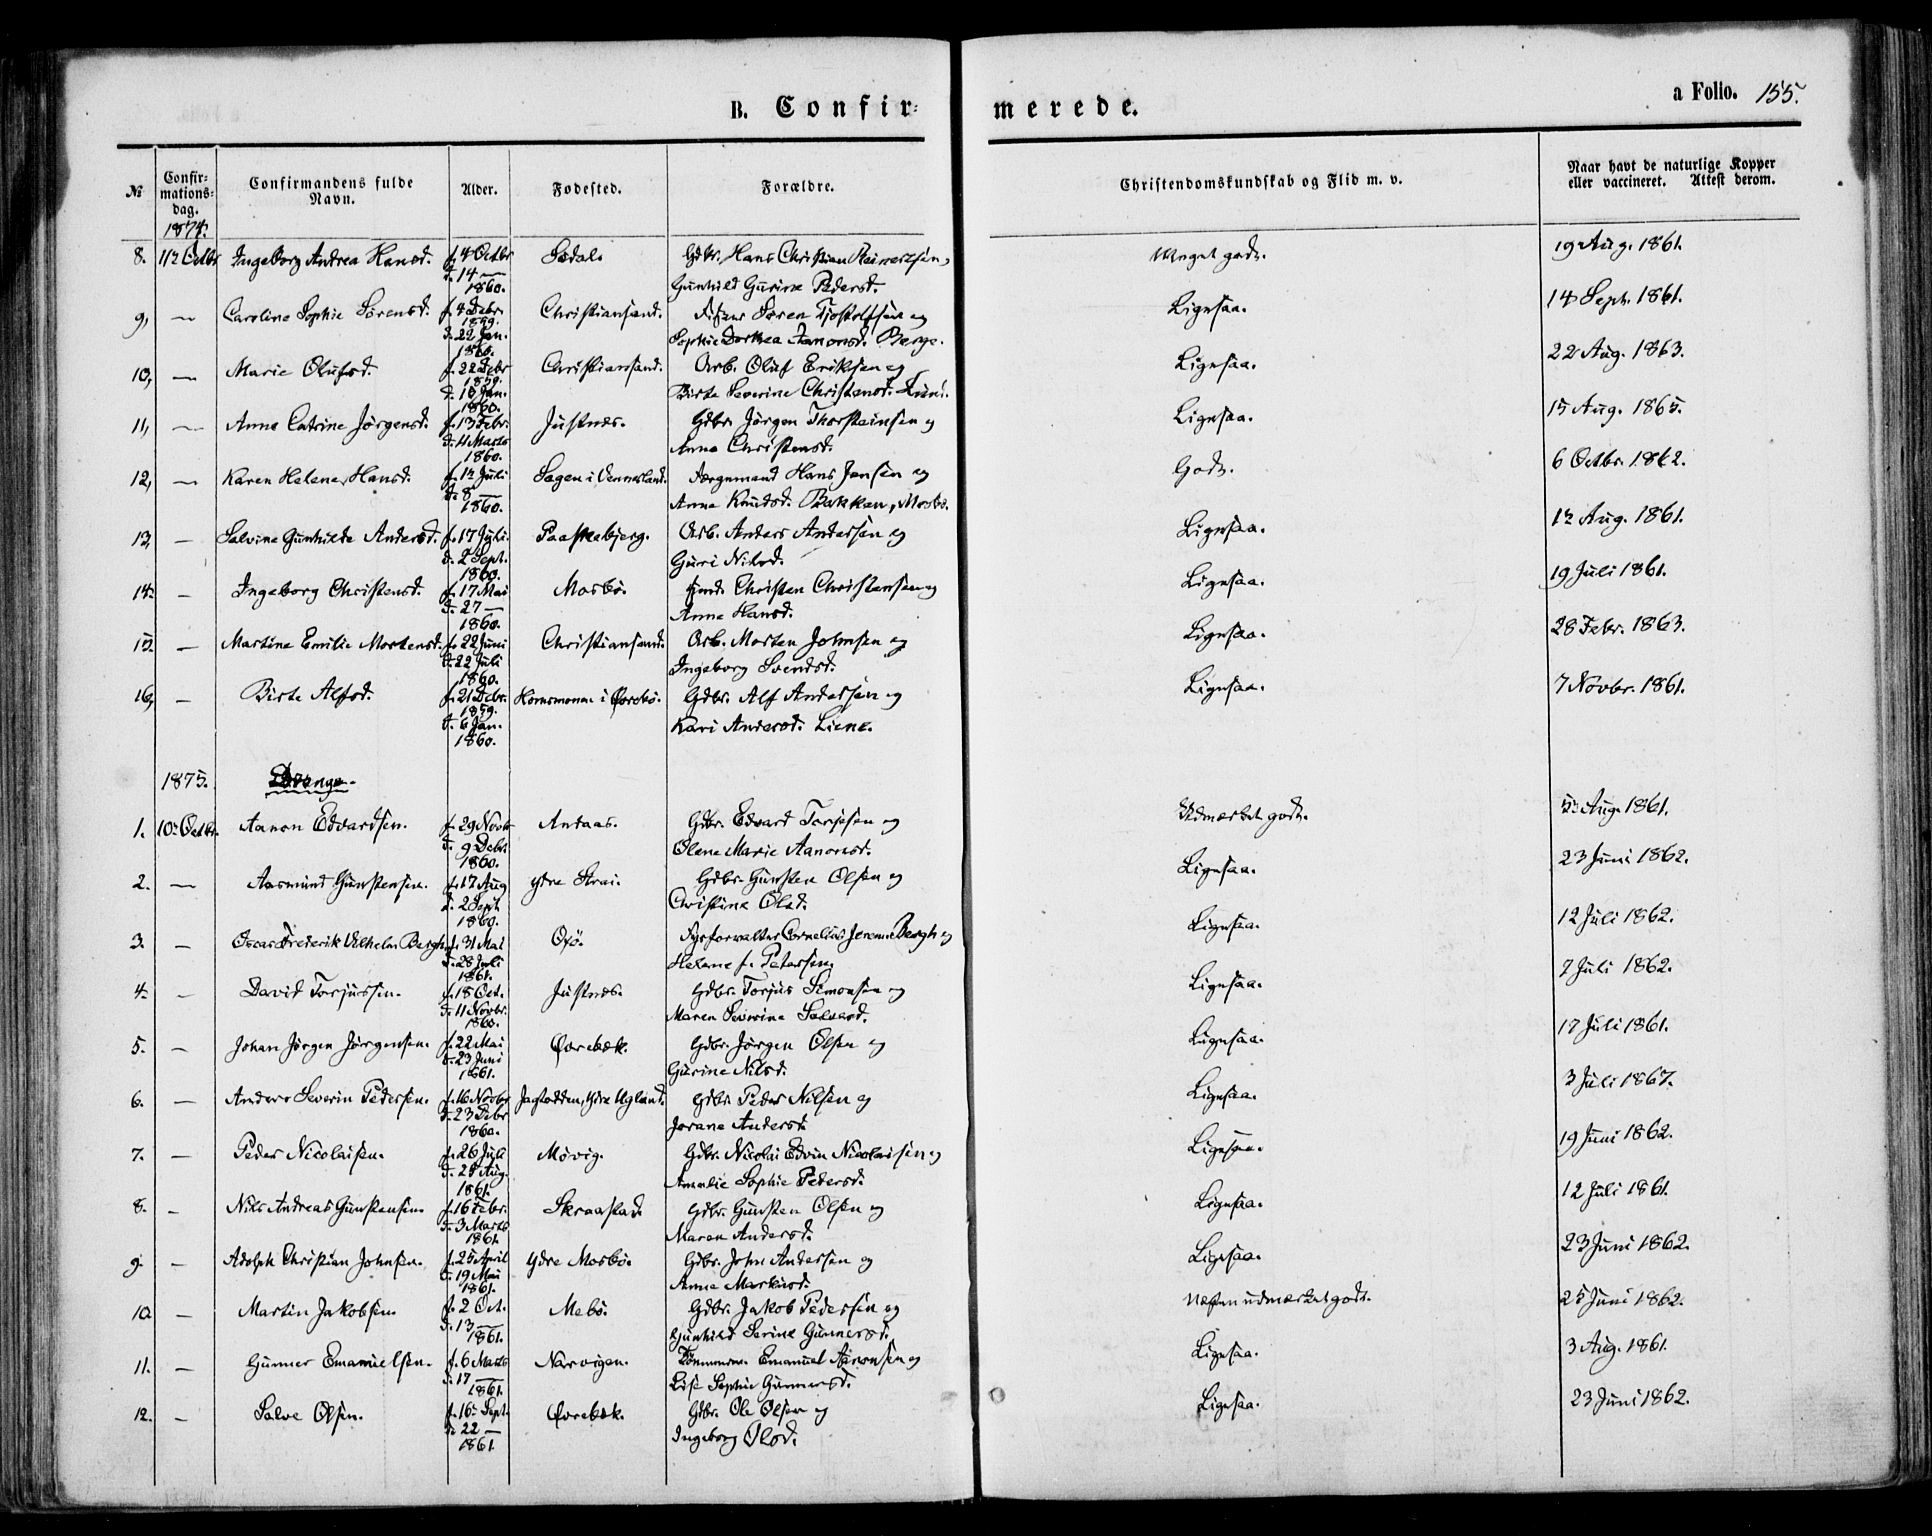 B. Confirmerede.
a Folio. 155.
№ Confirmationsdag. Confirmandens fulde Navn. Alder. Fødested. Forældre. Christendomskundskab og Flid m. v. Naar havt de naturlige Kopper eller vaccineret. Attest derom.
1874.
8. 11te Octbr Ingeborg Andrea Hansd. f. 4 Octbr d. 14 — 1860. Sødal. Gdbr. Hans Christian Reinertsen, Gunhild Gurine Pedersd. Meget godt. 19 Aug. 1861.
9, — Caroline Sophie Sørensd. f. 4 Debr. 1859. d. 22 Jan. 1860. Christiansand. Søren Tjostolfsen og Sophie Dorthea Aanonsd. Berge. Ligesaa. 14 Sept. 1861.
10, — Marie Olufsd. f. 22 Debr 1859. d. 18 Jan. 1860. Christianssand. Arb. Oluf Eriksen og Birte Severine Christensd. Ligesaa. 22 Aug. 1863.
11, — Anne Catrine Jörgensd. f. 13 Febr. d. 11 Marts 1860. Justnæs. Gdbr. Jörgen Thorsteinsen og Anne Christensd. Ligesaa. 15 Aug. 1865.
12, — Karen Helene Hansd. f. 12 Juli d. 8 — 1860. Sagen i Vennesland. Hans Jensen og Anne Knudsd. Bakken, Mosbö. Godt. 6 Octbr. 1862.
13, — Salvine Gunhilde Andersd. f. 17 Juli. d. 2 Sept. 1860. Paaskebjerg. Arb. Anders Andersen og Guri Nilsd. Ligesaa. 12 Aug. 1861.
14. — Ingeborg Christensd. f. 17 Mai d. 27 — 1860. Mosbö. Christen Christensen og Anne Hansd. Ligesaa. 19 Juli 1861.
15. — Martine Emilie Mortensd. f. 22 Juni d. 22 Juli 1860. Christiansand. Arb. Morten Johnsen og Ingeborg Svendsd. Ligesaa. 28 Febr. 1863.
16, — Birte Alfsd. f. 21 Debr. 1859. d. 6 Jan. 1860. Homsmoen i Øvrebö. Gdbr. Alf Andersen og Kari Andersd. Liene. Ligesaa. 7 Novbr. 1861.
1875. Drenge.
1. 10de Octbr. Aanon Edvardsen. f. 29 Novbr d. 9 Debr. 1860. Andaas. Gdbr. Edvard Torjesen og Olene Marie Aanonsd. Udmærket godt. 5te Aug. 1861.
2. — Aasmund Gunstensen. f. 17 Aug d. 2 Sept 1860. Ydre Strai. Gdbr. Gunsten Olsen og Christine Olsd. Ligesaa. 23 Juni 1862.
3. — Oscar Frederik Vilhelm Bergh. f. 31 Mai d. 28 Juli 1861. Oxö. Fyrforvalter Cornelius Jeremias Bergh og Helene f. Petersen. Ligesaa. 12 Juli 1862.
4. — David Torjussen. f. 18 Oct. d. 11 Novbr. 1860. Justnæs. Gdbr. Torjus Simonsen og Maren Severine Salvesd. Ligesaa. 7 Juli 1862.
5. — Johan Jörgen Jörgensen. f. 22 Mai d. 23 Juni 1861. Øvrebæk. Gdbr. Jörgen Olsen og Gurine Nilsd. Ligesaa. 17 Juli 1861.
6. — Anders Severin Pedersen. f. 16 Novbr d. 23 Debr 1860. Jagtodden, Ydre Ugland. Gdbr. Peder Nilsen og Jorane Andersd. Ligesaa. 3 Juli 1867.
7. — Peder Nicolaisen. f. 26 Juli d. 25 Aug. 1861. Mövig. Gdbr. Nicolai Edvin Nicolaisen og Amalie Sophie Pedersd. Ligesaa. 19 Juni 1862.
8. — Nils Andreas Gunstensen. f. 16 Febr. d. 3 Marts 1861. Skraastad. Gdbr. Gunsten Olsen og Maren Andersd. Ligesaa. 12 Juli 1861.
9. — Adolph Christian Johnsen. f. 25 April d. 19 Mai 1861. Ydre Mosbö. Gdbr. John Andersen og Anne Markusd. Ligesaa. 23 Juni 1862.
10. — Martin Jakobsen. f. 2 Oct. d. 13 — 1861. Mebö. Gdbr. Jakob Pedersen og Gunhild Serine Gunnersd. Næsten udmærket godt. 25 Juni 1862.
11. — Gunner Emanuelsen. f. 6 Marts d. 17 — 1861. Narvigen. Tömmerm. Emanuel Aanonsen og Lise Sophie Gunnersd. Ligesaa. 3 Aug. 1861.
12. — Salve Olsen. f. 16 Sept. d. 22 — 1861. Øvrebæk. Gdbr. Ole Olsen og Ingeborg Olsd. Ligesaa. 23 Juni 1862.